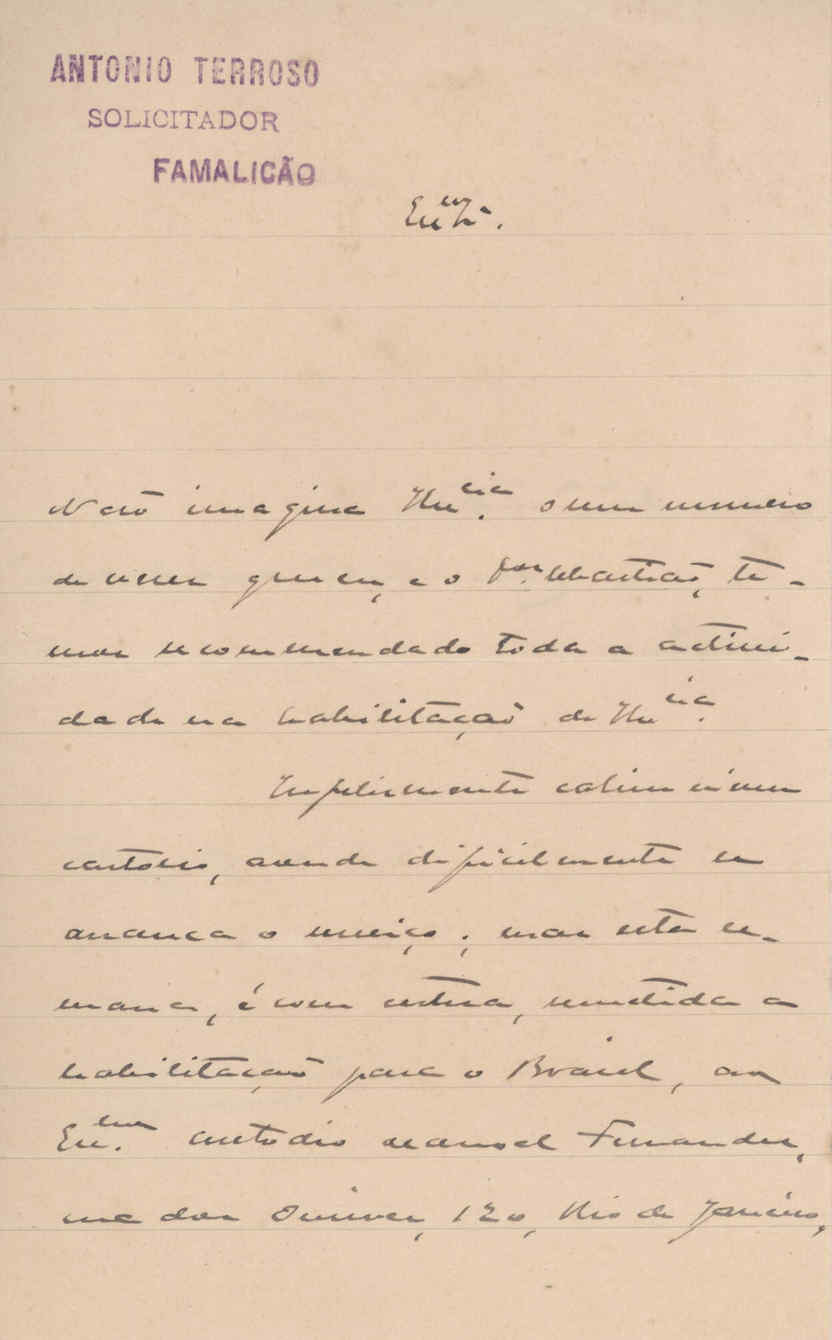 ANTONIO TERROSO
SOLICITADOR
FAMALICÃO
Não imagina V. Ex.cia o sem numero
de vezes que eu, e o Sebastião, te-
mos recommendado toda a activi-
dade na habilitação de V. Ex.cia
Infelizmente cahiu n'um
cartorio, aonde dificilmente se
arranca o serviço; mas esta se-
mana, é com certeza, remettida a
habilitação para o Brasil, ao
Ex.mo Custodio Manoel Fernandes,
rua dos Ourives, 120, Rio de Janeiro,